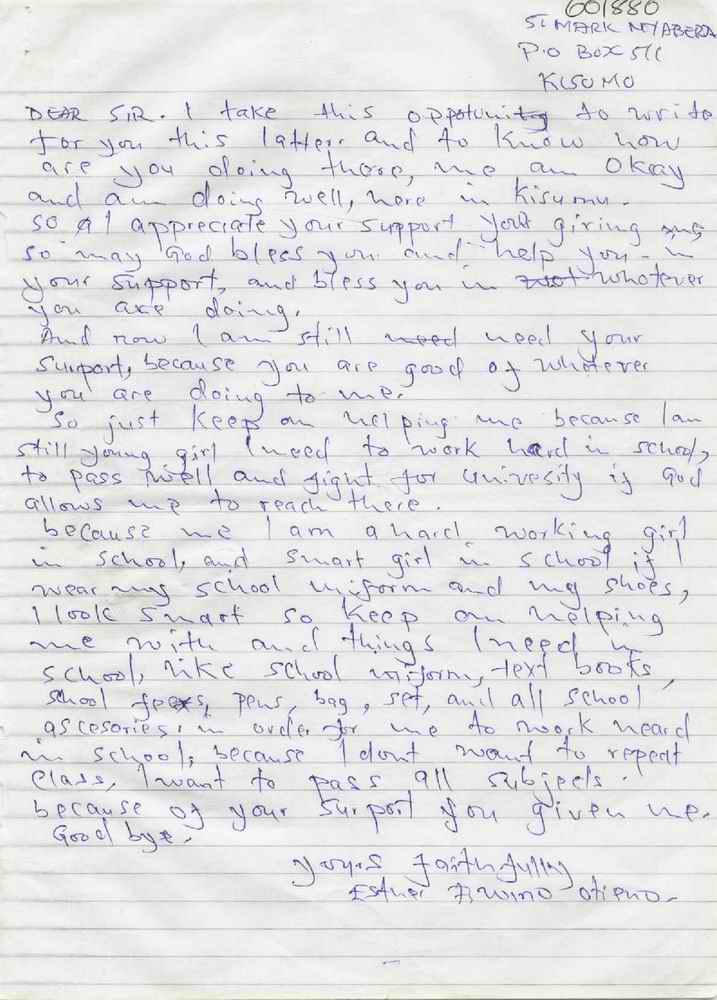 601880
ST. MARK NYABERA
P.O BOX 511
KISUMO
DEAR SIR. I take this oppotunity to write
for you this latter, and to know how
are you doing there, me am Okay
and am doing well, here in Kisumu.
so I appreciate your support your giving me
so may God bless you and help you in
your support, and bless you in whatever
you are doing.
And now I am still need your
support, because you are good of whatever
you are doing to me.
So just keep on helping me because I am
still young girl I need to work hard in school,
to pass well and fight for univesity if God
allows me to reach there.
because me I am a hard working girl
in school, and smart girl in school if I
wear my school uniform and my shoes,
I look smart so keep on helping
me with and things I need in
school, like school uniform, text books,
school fees, pens, bag, set, and all school
asccesories in order for me to work heard
in school, because I dont want to repeat
class, I want to pass all subjects.
because of your support you given me.
Good bye.
yours faithfully
Esther Awino otieno.